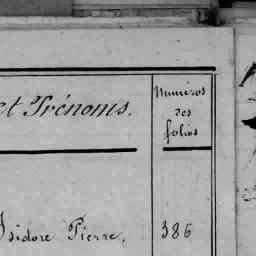 et Prénoms.
Numéros
des
folios
Isidore Pierre, 386